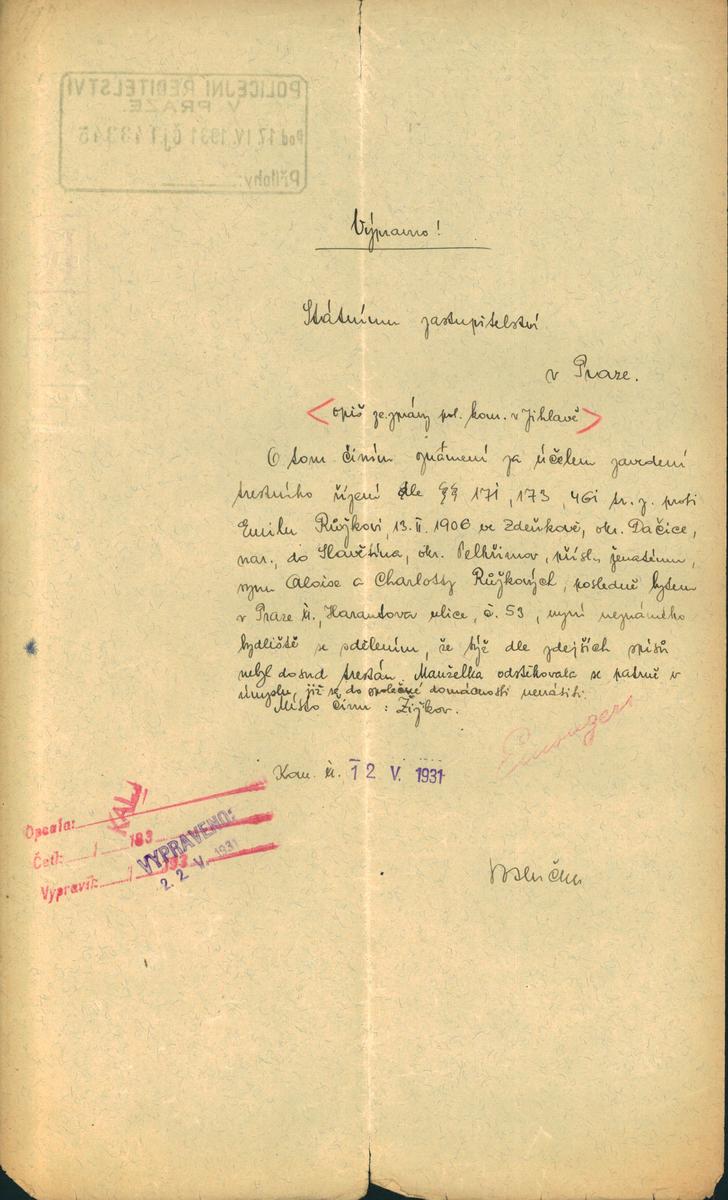 POLICEJNÍ ŘEDITELSTVÍ
V PRAZE
Pod 17. IV. 1931 čj 143345
Přílohy:
Výpravno!
Státnímu zastupitelství
v Praze.
< opiš ze zprávy pol. kom. v Jihlavě >
O tom činím oznámení za účelem zavedení
trestního řízení dle §§ 171, 173, 461 tr. z. proti
Emilu Růžkovi, 13. II. 1906 ve Zdeňkově, okr. Dačice,
nar., do Slavětína, okr. Pelhřimov, přísl., ženatému,
synu Aloise a Charlotty Růžkových, posledně bytem
v Praze Harantova ulice, č. 53, nyní neznámého
bydliště se sdělením, že týž dle zdejších spisů
nebyl dosud trestán. Manželka odstěhovala se patrně v
úmyslu, již se do společné domácnosti nevrátiti.
Místo činu: Žižkov.
Kom. 12 V. 1931
Opsala: KAL
Četl: / 193
Vypravil: / 193
VYPRAVENO:
2 2. V. 1931